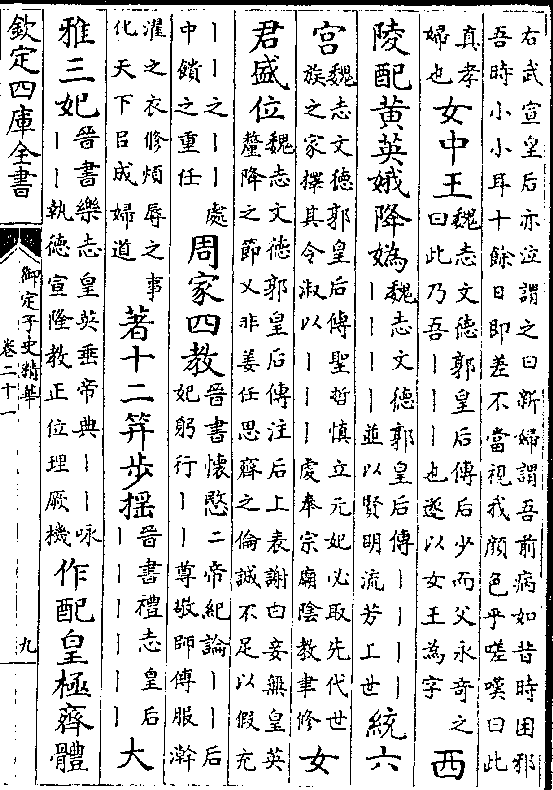 右武宣皇后亦泣謂之曰新婦謂吾前病如昔時困邪
吾時小小耳十餘日即差不當視我顏色乎嗟嘆曰此
真孝
婦也
女中王
魏志文德郭皇后傳后少而父永奇之
曰此乃吾丨丨丨也遂以女王為字
西
陵配黃英娥降媯
魏志文德郭皇后傳丨丨丨丨
丨丨丨丨並以賢明流芳上世
統六
宮
魏志文德郭皇后傳聖哲慎立元妃必取先代世
族之家擇其令淑以丨丨丨虔奉宗廟陰教聿修
女
君盛位
魏志文德郭皇后傳注后上表謝曰妾無皇英
釐降之節又非姜任思齊之倫誠不足以假充
丨丨之丨丨處
中饋之重任
周家四教
晉書懷愍二帝紀論丨丨后
妃躬行丨丨尊敬師傅服澣
濯之衣修煩辱之事
化天下以成婦道
著十二筓步搖
晉書禮志皇后
丨丨丨丨丨丨
大
雅三妃
晉書樂志皇英垂帝典丨丨咏
丨丨執德宣隆教正位理厥機
作配皇極齊體
欽定四庫全書
御定子史精華
卷二十一
九